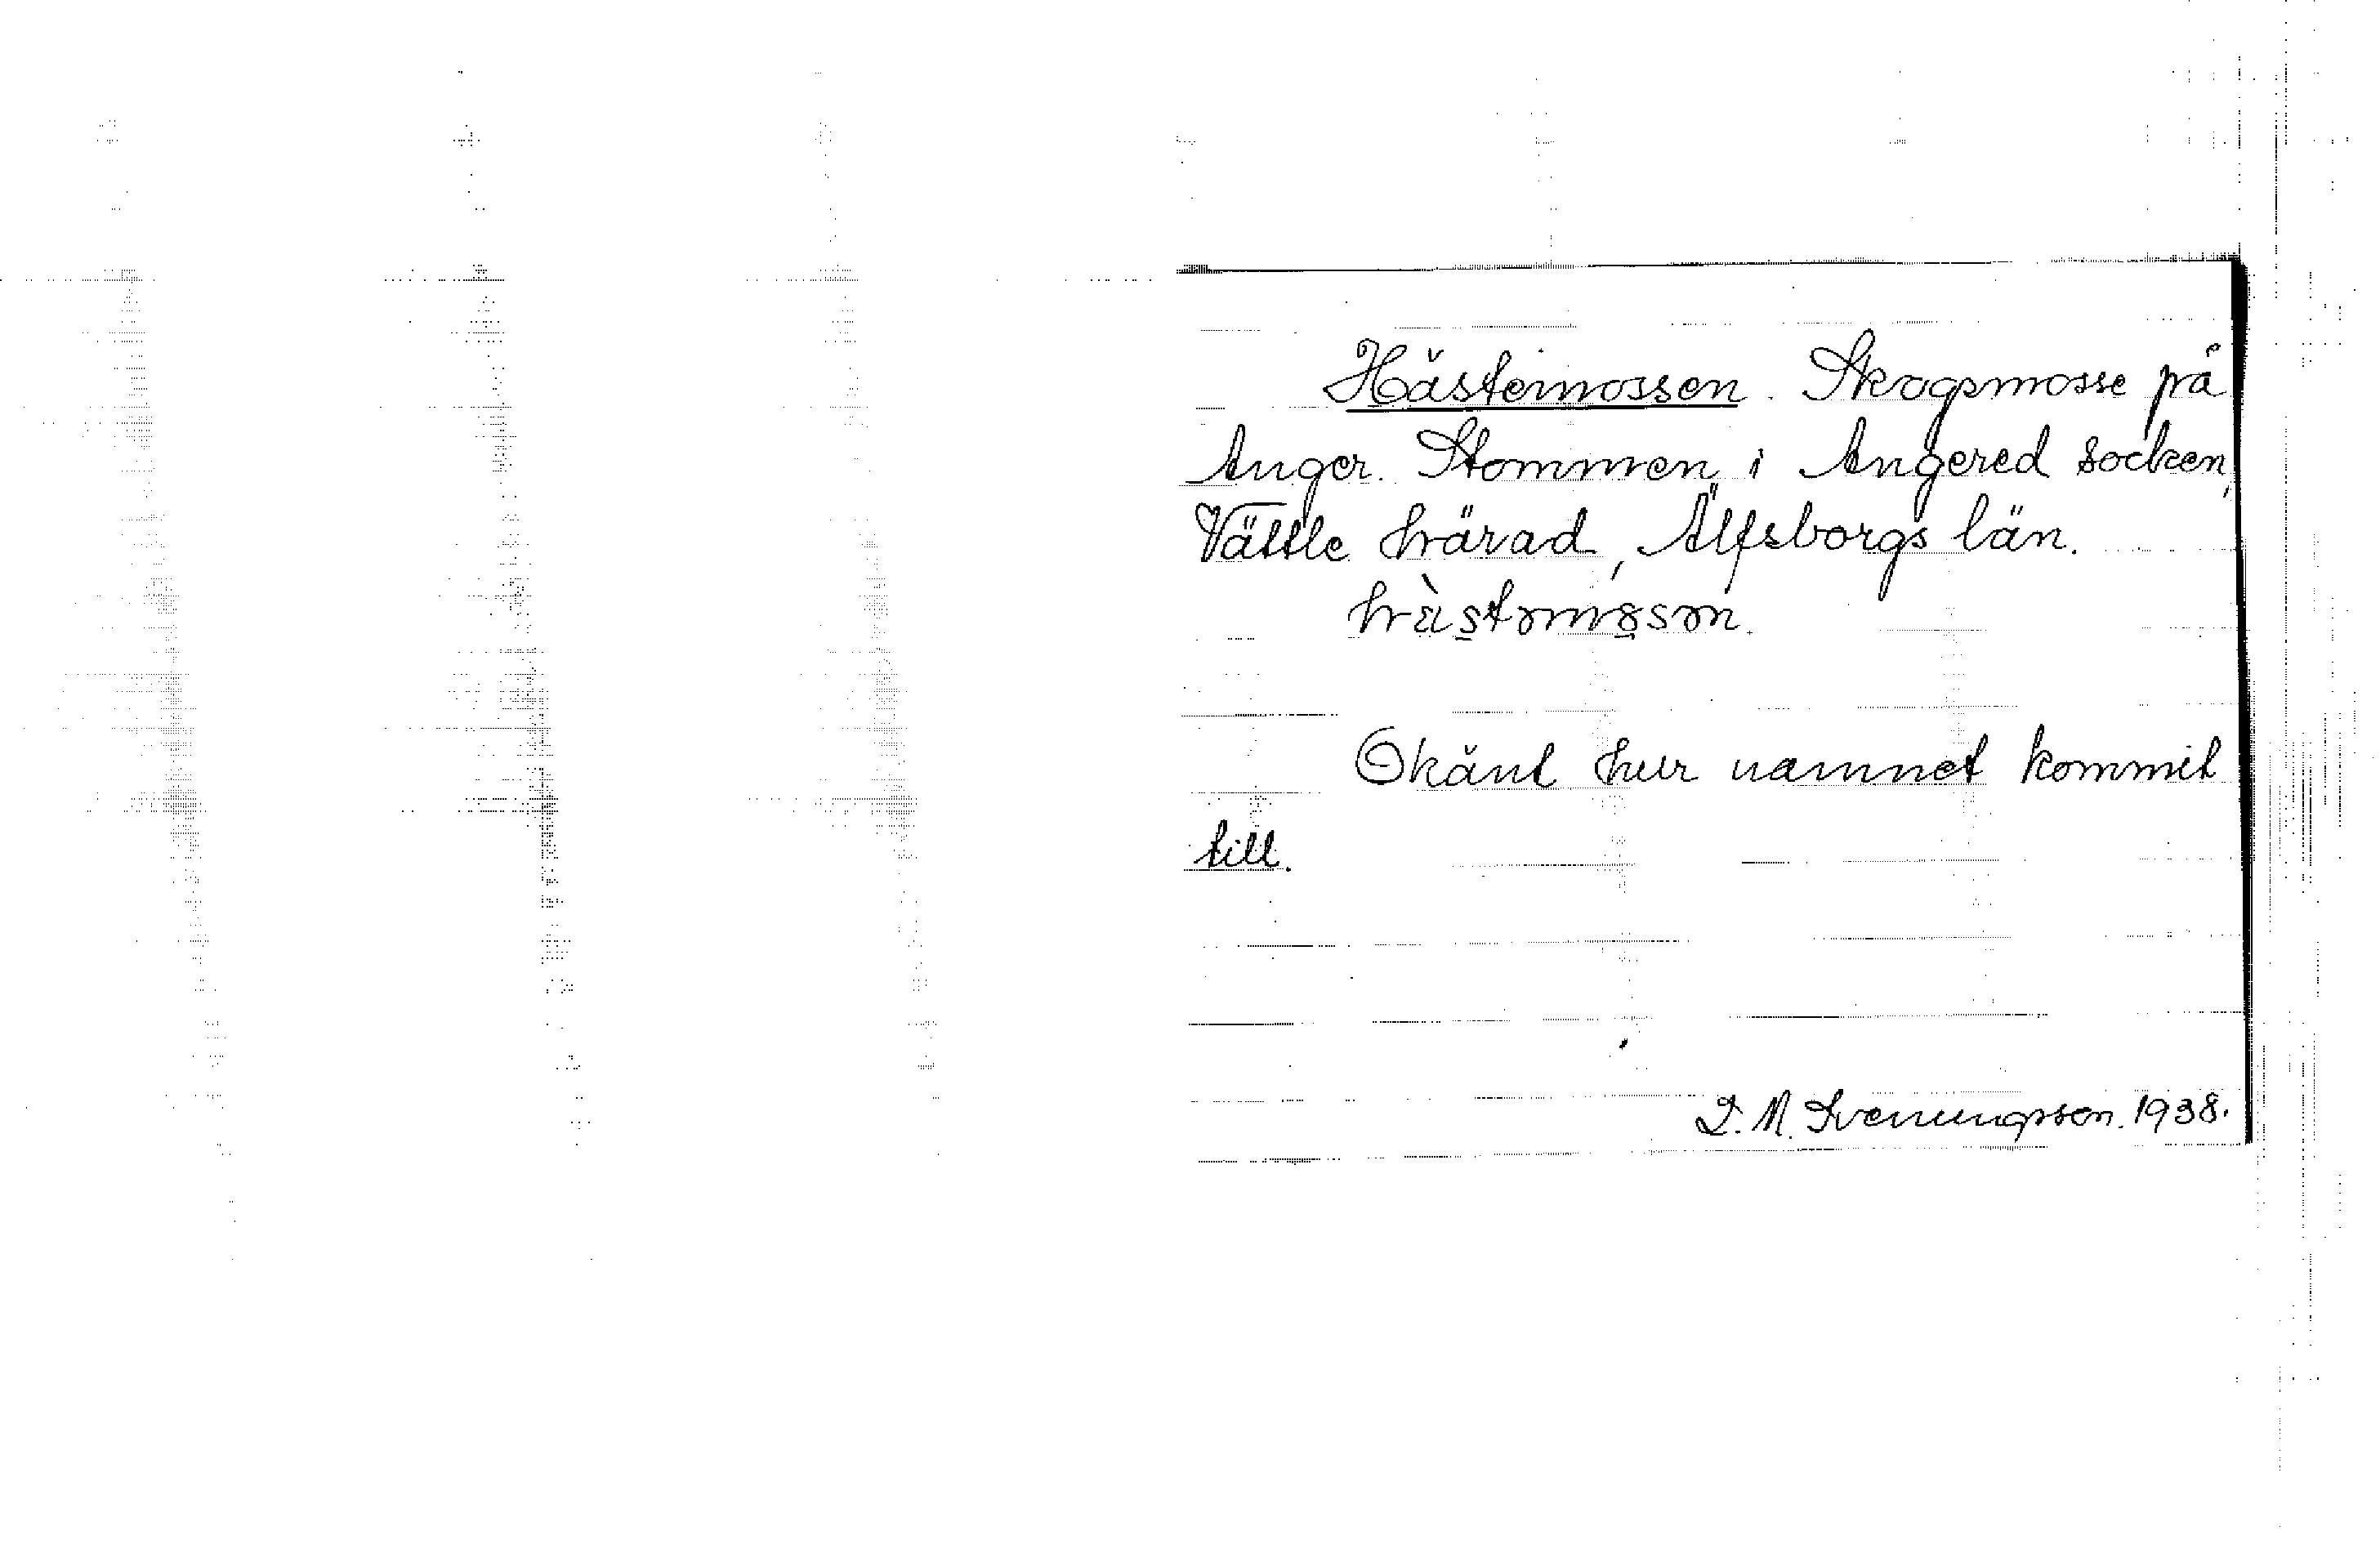 Hästemossen. Skogsmosse på
Anger. Stommen i Angered socken,
Vättle härad, Älfsborgs län.
hästəmɔsən.
Okänt hur namnet kommit
till.
I. M. Svenungsson. 1938.